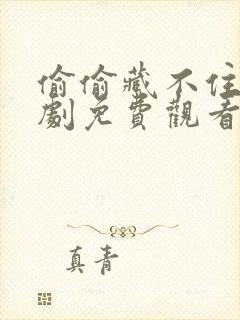 偷偷藏不住
劇免費觀看
真青